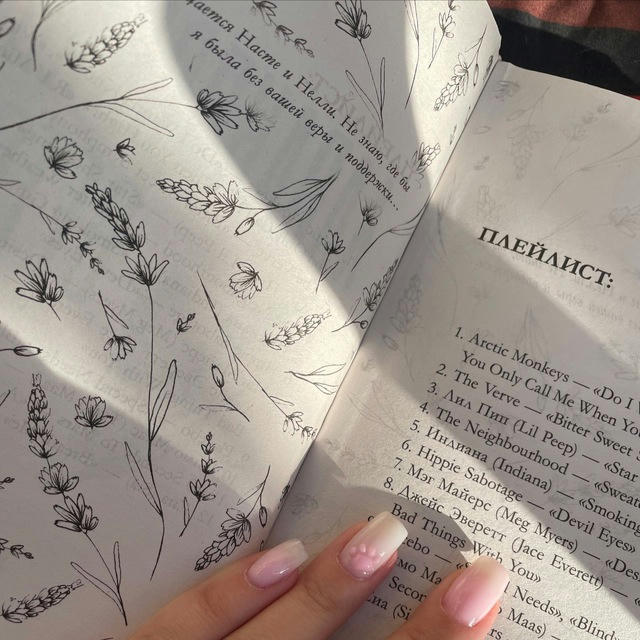 щается Насте и Нелли. Не знаю, где бы
я была без вашей веры и поддержки...
ПЛЕЙЛИСТ:
1. Arctic Monkeys — «Do I W
You Only Call Me When You
2. The Verve — «Bitter Sweet S
3. Лил Пип (Lil Peep) — «Star
4. The Neighbourhood — «Sweat
5. Индиана (Indiana) — «Smoking
6. Hippie Sabotage — «Devil Eyes»
7. Мэг Майерс (Meg Myers) — «Des
8. Джейс Эверетт (Jace Everett) —
Bad Things With You»
cebo — «
d Needs», «Blinds
мо Ма
Maas)
Secon
rs
ена (Si